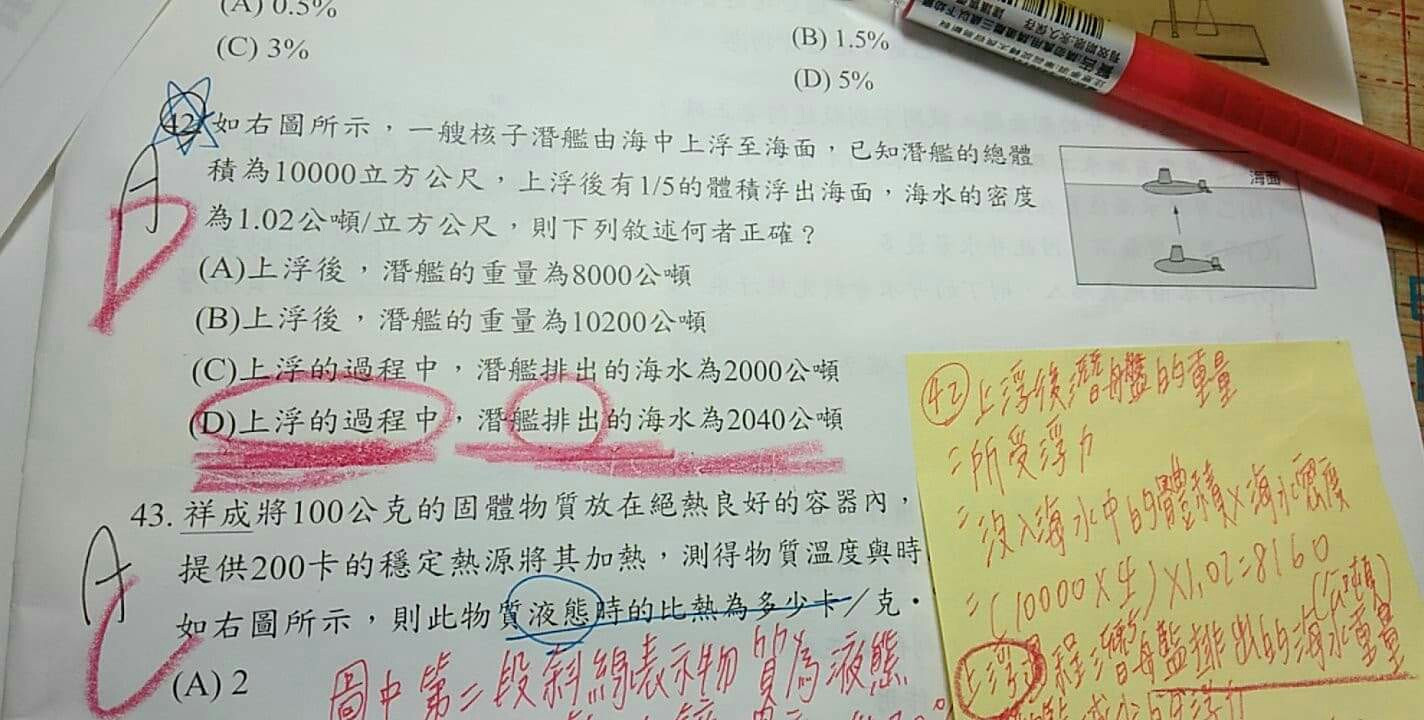 (A) 0.5%
(B) 1.5%
(C) 3%
(D) 5%
42. 如右圖所示，一艘核子潛艦由海中上浮至海面，已知潛艦的總體
積為10000立方公尺，上浮後有1/5的體積浮出海面，海水的密度
為1.02公噸/立方公尺，則下列敘述何者正確？
海面
(A)上浮後，潛艦的重量為8000公噸
(B)上浮後，潛艦的重量為10200公噸
(C)上浮的過程中，潛艦排出的海水為2000公噸
(D)上浮的過程中，潛艦排出的海水為2040公噸
A
D
43. 祥成將100公克的固體物質放在絕熱良好的容器內，
提供200卡的穩定熱源將其加熱，測得物質溫度與時
如右圖所示，則此物質液態時的比熱為多少卡／克·
(A) 2
A
C
圖中第二段斜線表示物質為液態
㊷上浮後潛艦的重量
=所受浮力
=沒入海水中的體積×海水密度
=(10000×4/5)×1.02=8160
(公噸)
上浮過程潛艦排出的海水重量